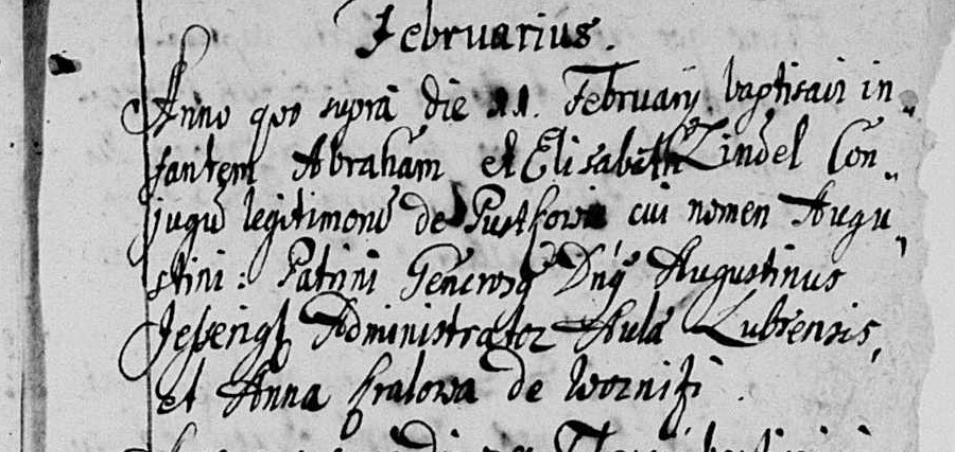 Februarius.
Anno quo supra die 11. Februarij. baptisavi in„
fantem Abraham et Elisabeth Zindel Con„
jugū legitimorū de Pustkowia cui nomen Augu„
stini: Patrini Genčrosg Dnġ Augustinus
Administrator Aulæ Lubrensis,
et Anna Kralowa de Wozniki.